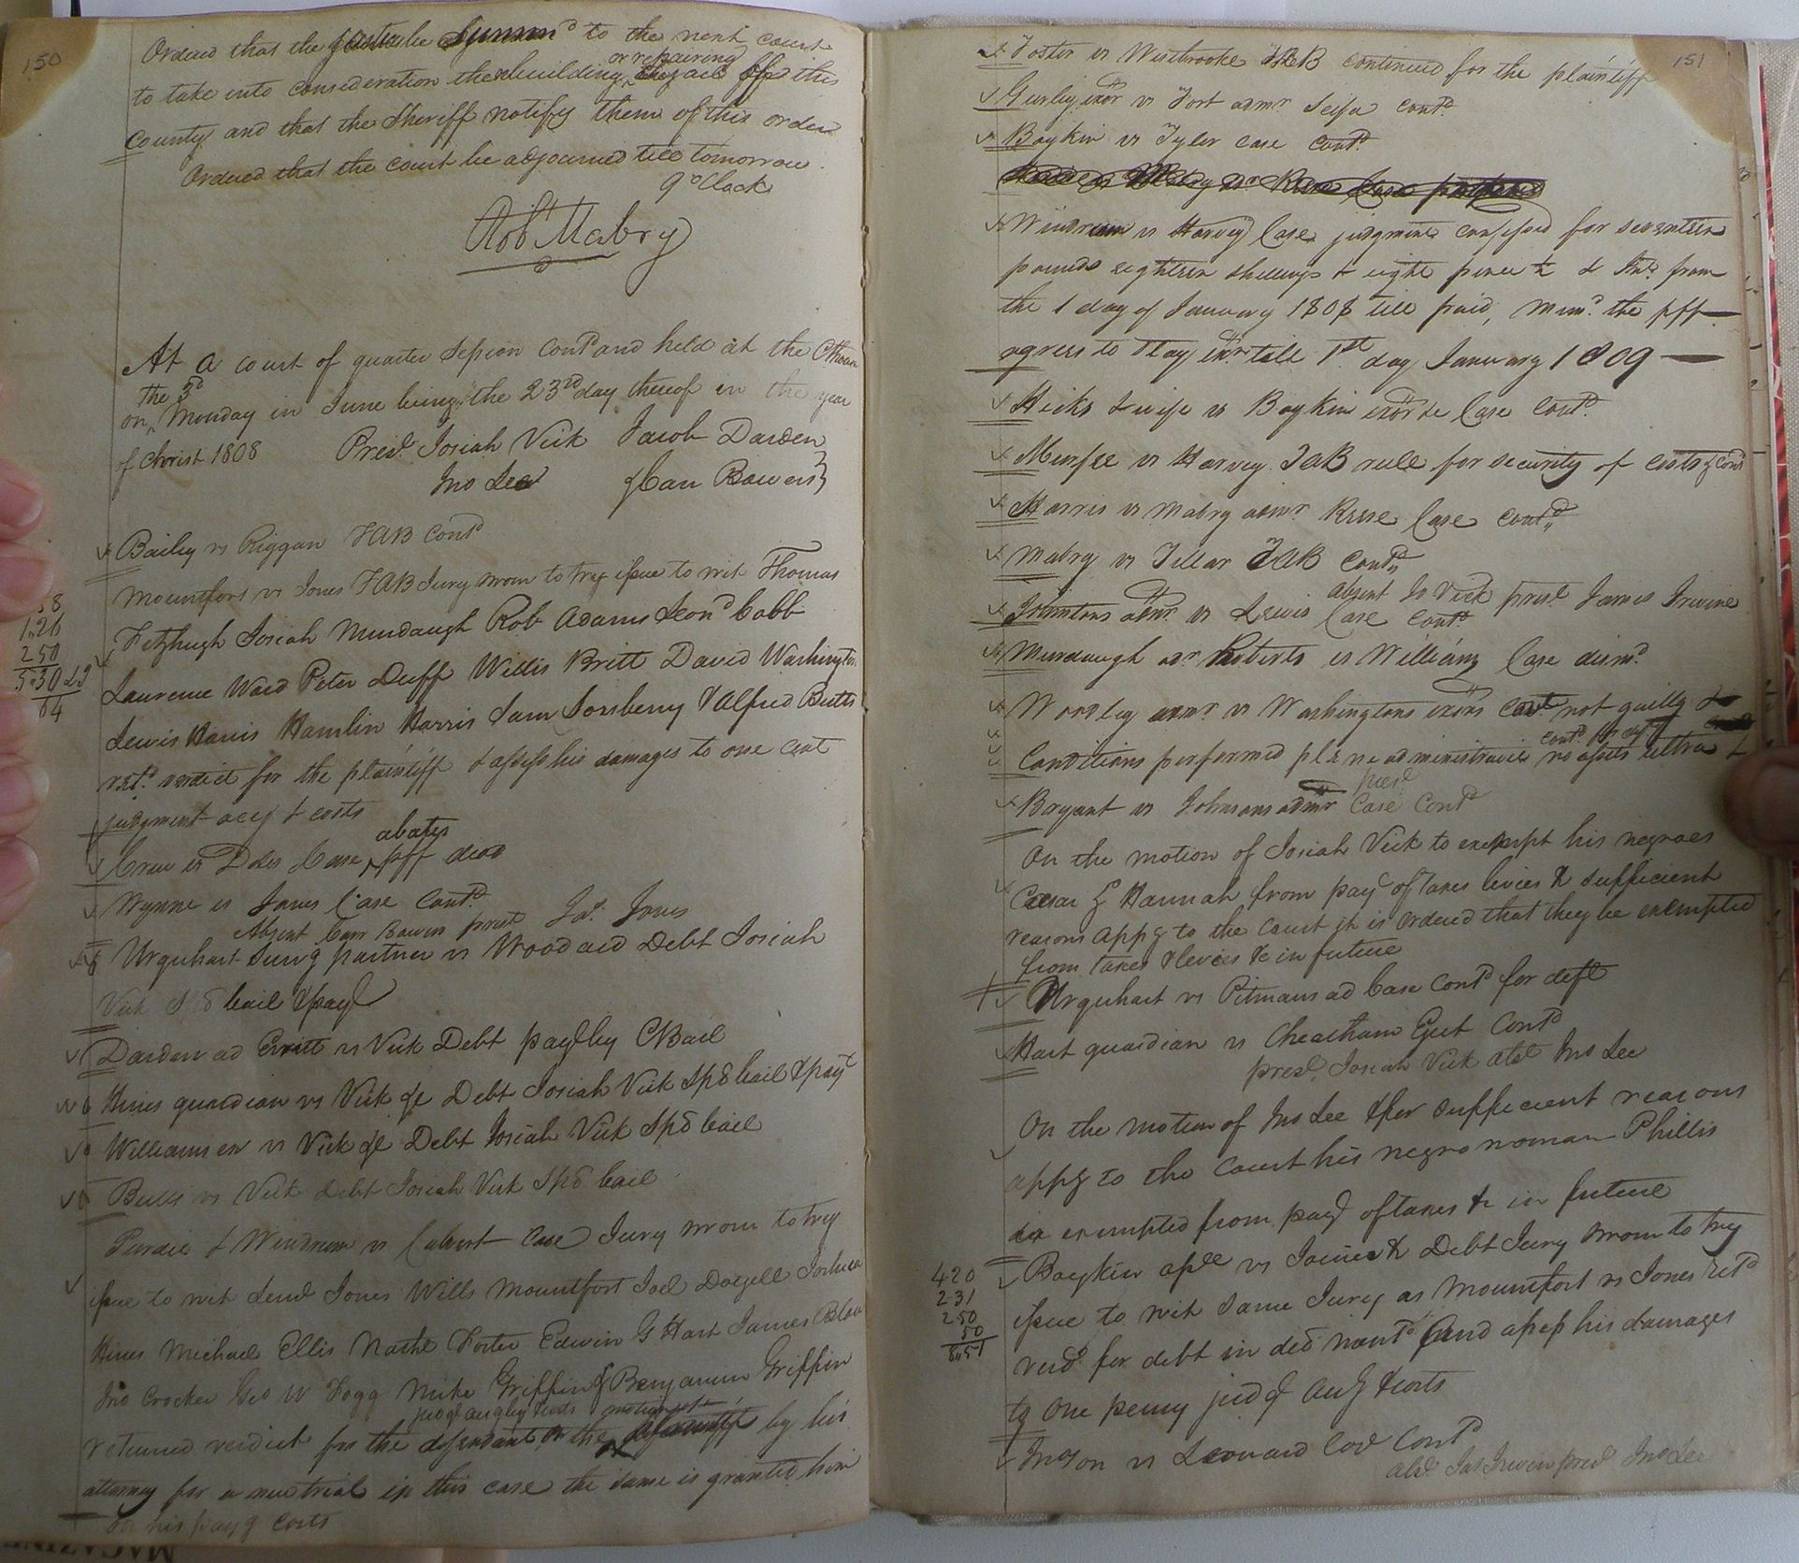 150
Ordered that the justices be Summd to the next court
or repairing
to take into consideration the building the jail of this
County and that the Sheriff notify them of this order
Ordered that the court be adjourned till tomorrow
9 oClock
Rob Mabry
At a court of quarter Session Contd and held at the
the 3d
on Monday in June being the 23rd day thereof in the year
of Christ 1808 Presd Josiah Vick Jacob Darden
Jno Lee & Carr Bowers
Bailey vs Riggan TAB Contd
Mountfort vs Jones TAB Jury sworn to try issue to wit Thomas
Fitzhugh Josiah Murdaugh Rob Adams Leond Cobb
Laurence Ward Peter Duff Willis Britt David Washington
Lewis Harris Hamlin Harris Sam Sorsberry & Alfred Butts
retd verdict for the plaintiff & assess his damages to one cent
judgment accg & costs
126
250
530
64
abates
Crew vs Doles Case pff dead
Wynne vs Jones Case Contd
Absent Carr Bowers prest Jas. Jones
Urquhart Survg partner vs Woodard Debt Josiah
Vick Spe bail & payt
Darden ad Britt vs Vick Debt payt by C Bail
Hines guardian vs Vick &c Debt Josiah Vick Spe bail & payt
Williamson vs Vick &c Debt Josiah Vick Spe bail
Butts vs Vick debt Josiah Vick Spe bail
Purdie & Windrum vs Calvert Case Jury sworn to try
issue to wit Jones Wills Mountfort Joel Joshua
Hines Michael Ellis Nathl Foster Edwin G Hart James
Jno Crocker Geo W Fogg Mike Griffin & Benjamin Griffin
returned verdict for the defendant on the plaintiff by his
attorney for a new trial in this case the same is granted him
on his payg costs
151
Foster vs Westbrooke TAB continued for the plaintiff
Gurley exor vs Fort admr Scifa Contd
Boykin vs Tyler case contd
Windrum vs Harvey Case judgment confessed for seventeen
pounds eighteen shillings & eight pence ½ & Int from
the 1 day of January 1808 till paid, Mem. the pff
agrees to stay exon till 1st day January 1809
Hicks & wife vs Boykin exor &c Case Contd
vs Harvey TAB rule for security of costs & contd
Harris vs Mabry admr Case Contd
Mabry vs Tillar TAB Contd
absent Jo Vick prest James Irwine
Johnstons admr vs Lewis Case contd
Murdaugh asr Roberts vs Williams Case dismd
Woodley admr vs Washingtons exors not guilty &
Conditions performed plene administravit no assets ultra &
Bryant vs Johnsons admr Case Contd
On the motion of Josiah Vick to exempt his negroes
Caesar & Hannah from payt of taxes levies & sufficient
reasons appg to the Court it is ordered that they be exempted
from taxes & levies &c in future
Urquhart vs Pitmans ad Case Contd for deft
Hart guardian vs Cheatham Eject Contd
presd Josiah Vick abst Jno Lee
On the motion of Jno Lee & for sufficient reasons
appg to the Court his negro woman Phillis
is exempted from payt of taxes &c in future
420
231
250
50
Boykin assee vs &c Debt Jury sworn to try
issue to wit Same Jury as Mountfort vs Jones retd
verdt for debt in dec mentd and assess his damages
to One penny judgt accg & costs
vs Leonard Cove Contd
abst Jas Irwin presd Jno Lee